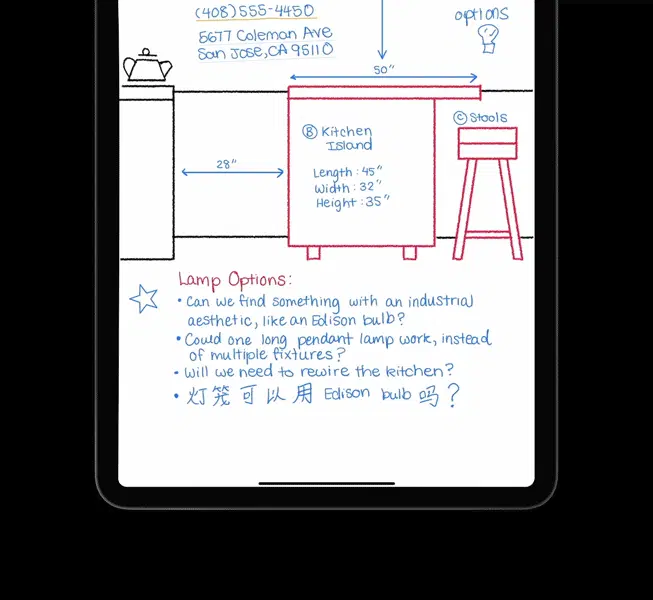 (408)555-4450
options
5677 Coleman Ave
San Jose, CA 95110
50"
Ⓑ Kitchen
Island
Ⓒ Stools
28"
Length : 45"
Width : 32"
Height : 35"
Lamp Options:
• Can we find something with an industrial
aesthetic, like an Edison bulb?
• Could one long pendant lamp work, instead
of multiple fixtures?
• Will we need to rewire the kitchen?
• 灯笼可以用 Edison bulb 吗?